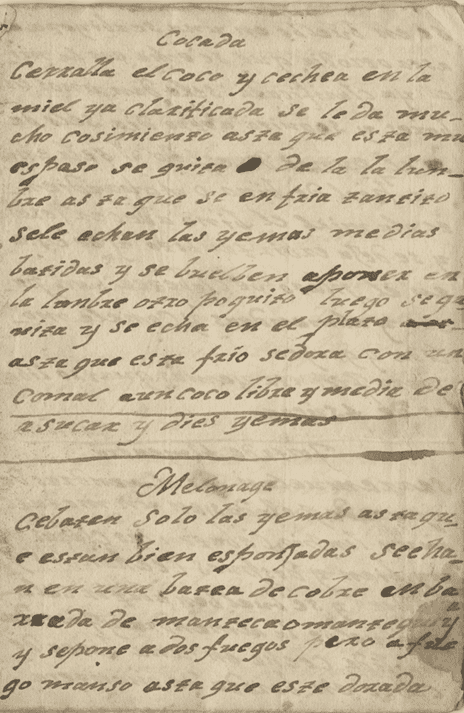 Cocada
Cerralla el coco y cechea en la
miel ya clarificada se le da mu-
cho cosimiento asta que esta mu
espaso se quita de la la lun-
bre asta que se enfria tantito
sele echan las yemas medias
batidas y se buelben aponer en
la lunbre otro poquito luego sequ
nita y se echa en el plato
asta que esta frio sedora con un
Comal aun coco libra y media de
asucar y dies yemas
Melonage
Cebaten solo las yemas astaqu-
e estan bien esponjadas secha-
n en una batea de cobre enba
rrada de mantecaomantequi
y sepone a dos fuegos pero a fue
go manso asta que este dorada